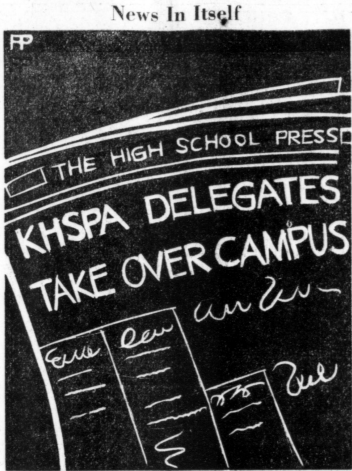 News In Itself
PP
THE HIGH SCHOOL PRESS
KHSPA DELEGATES
TAKE OVER CAMPUS